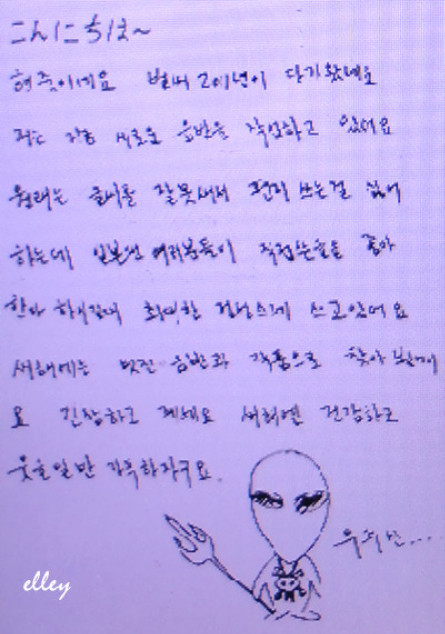 こんにちは~
현중이에요 벌써 2011년이 다가왔네요
저는 지금 새로운 음반을 작업하고 있어요
원래는 글씨를 잘못써서 편지 쓰는걸 싫어
하는데 일본팬 여러분들이 직접쓴글을 좋아
한다 하시길래 최대한 열심히 쓰고있어요
새해에는 멋진 음반과 작품으로 찾아 뵐게
요 긴장하고 계세요 새해엔 건강하고
웃을일만 가득하자구요.
우주신...
elley